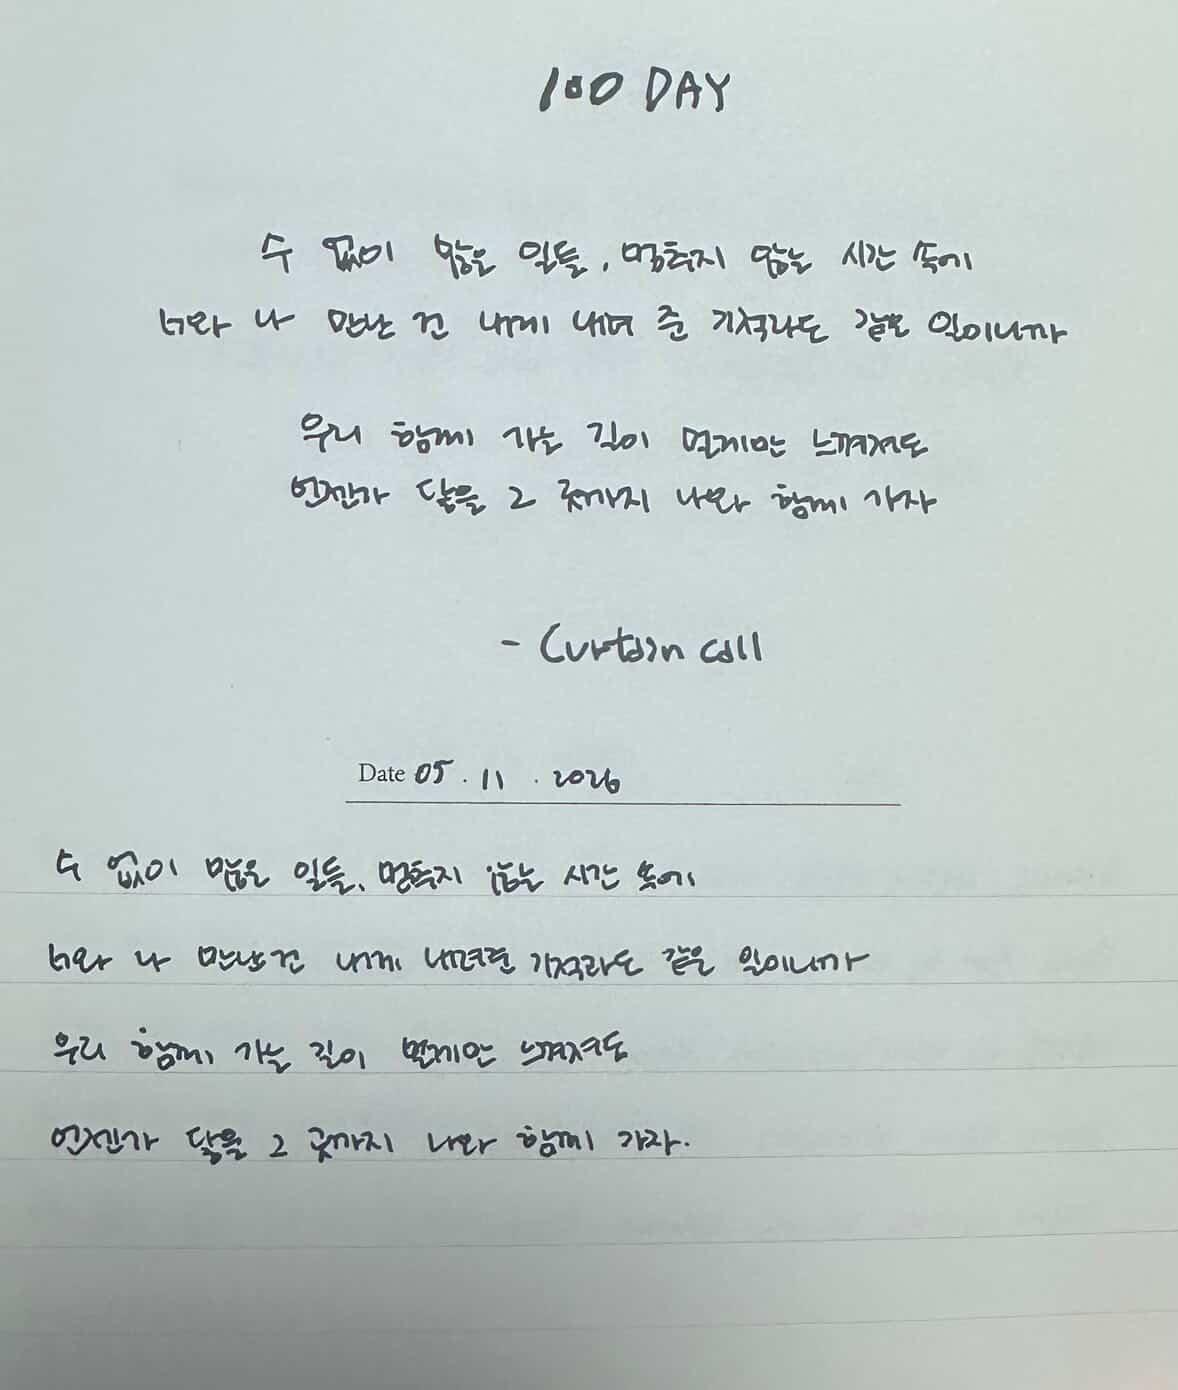 100 DAY
수 없이 많은 일들, 멈추지 않는 시간 속에
너와 나 만난 건 내게 내려 준 기적라도 같은 일이니까
우리 함께 가는 길이 멀게만 느껴져도
언젠가 닿을 그 곳까지 나와 함께 가자
- Curtain call
Date 05 . 11 . 2026
수 없이 많은 일들, 멈추지 않는 시간 속에
너와 나 만난 건 내게 내려준 기적라도 같은 일이니까
우리 함께 가는 길이 멀게만 느껴져도
언젠가 닿을 그 곳까지 나와 함께 가자.